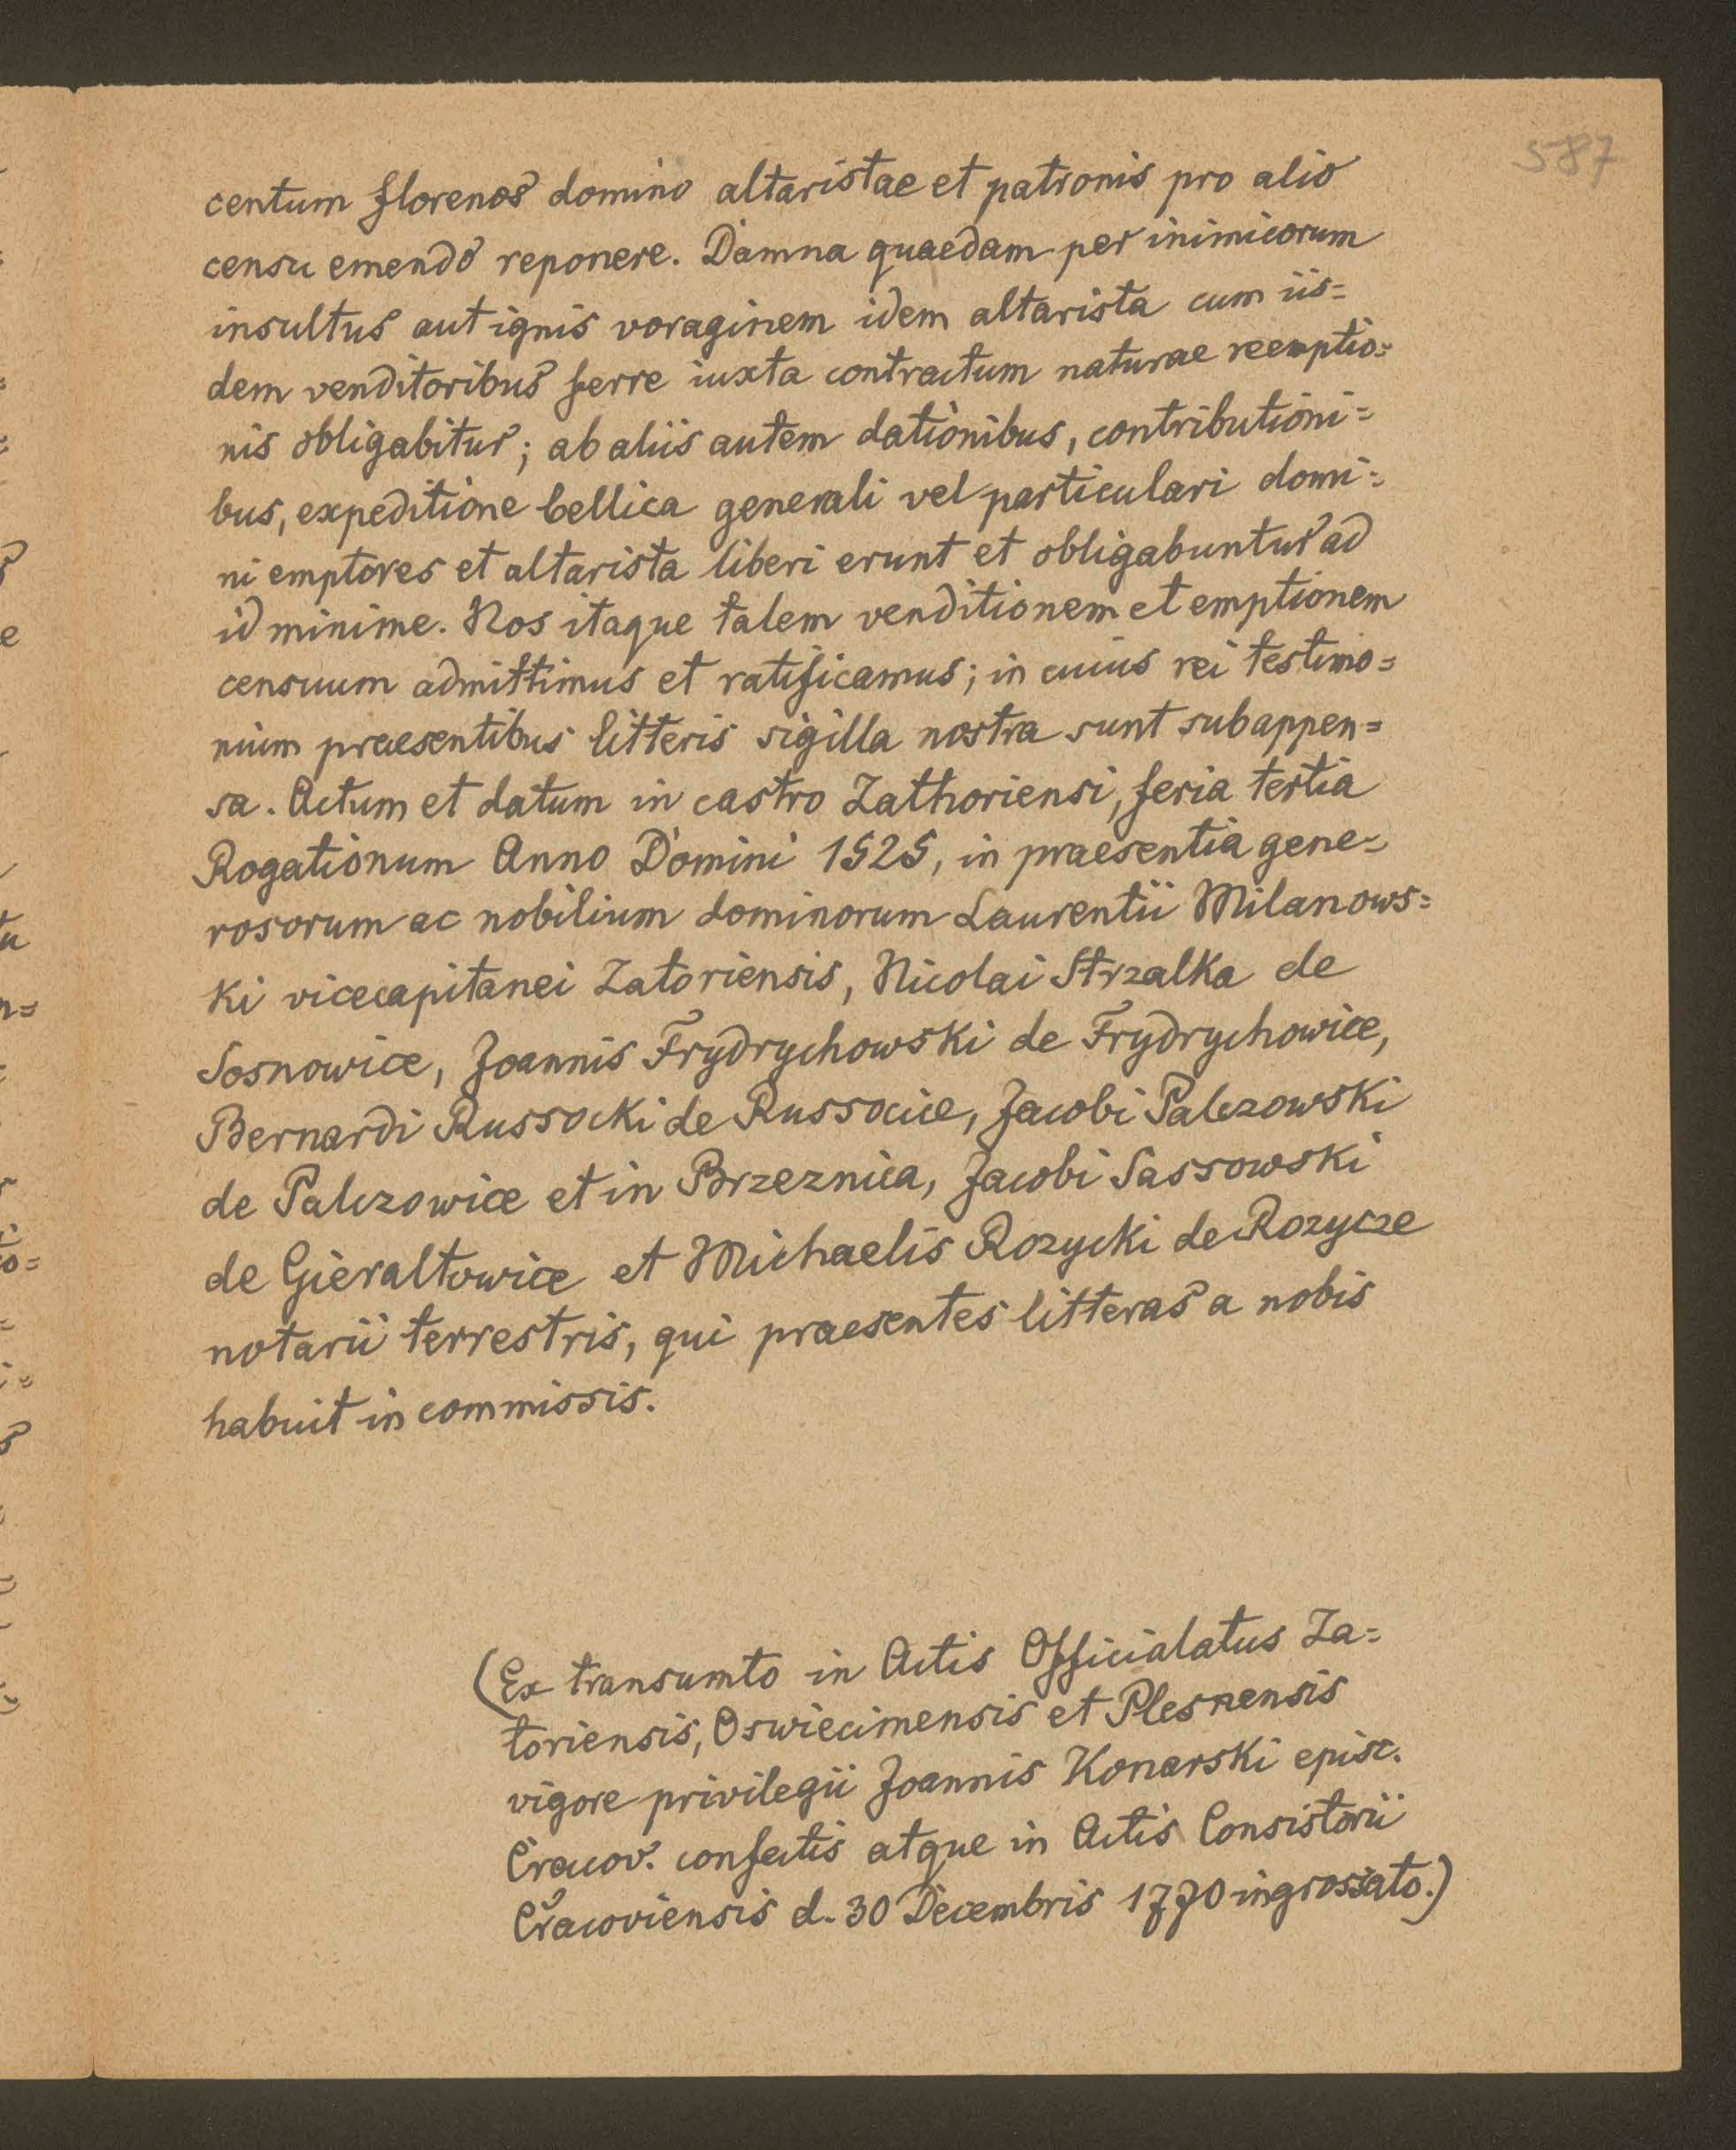 587
centum florenos domino altaristae et patronis pro alio
censu emendo reponere. Damna quaedam per inimicorum
insultus aut ignis voraginem idem altarista cum iis=
dem venditoribus ferre iuxta contractum naturae reemptio=
nis obligabitur; ab aliis autem dationibus, contributioni=
bus, expeditione bellica generali vel particulari domi=
ni emptores et altarista liberi erunt et obligabuntur ad
id minime. Nos itaque talem venditionem et emptionem
censuum admittimus et ratificamus; in cuius rei testimo=
nium praesentibus litteris sigilla nostra sunt subappen=
sa. Actum et datum in castro Zathoriensi, feria tertia
Rogationum Anno Domini 1525, in praesentia gene=
rosorum ac nobilium dominorum Laurentii Milanows=
ki vicecapitanei Zatoriensis, Nicolai Strzalka de
Sosnowice, Joannis Frydrychowski de Frydrychowice,
Bernardi Russocki de Russocice, Jacobi Palczowski
de Palczowice et in Brzeznica, Jacobi Sassowski
de Gieraltowice et Michaelis Rozycki de Rozycze
notarii terrestris, qui praesentes litteras a nobis
habuit in commissis.
(Ex transumto in Actis Officialatus Za=
toriensis, Oswiecimensis et Plesnensis
vigore privilegii Joannis Konarski episc.
Cracov. confectis atque in Actis Consistorii
Cracoviensis d. 30 Decembris 1770 ingrossato.)